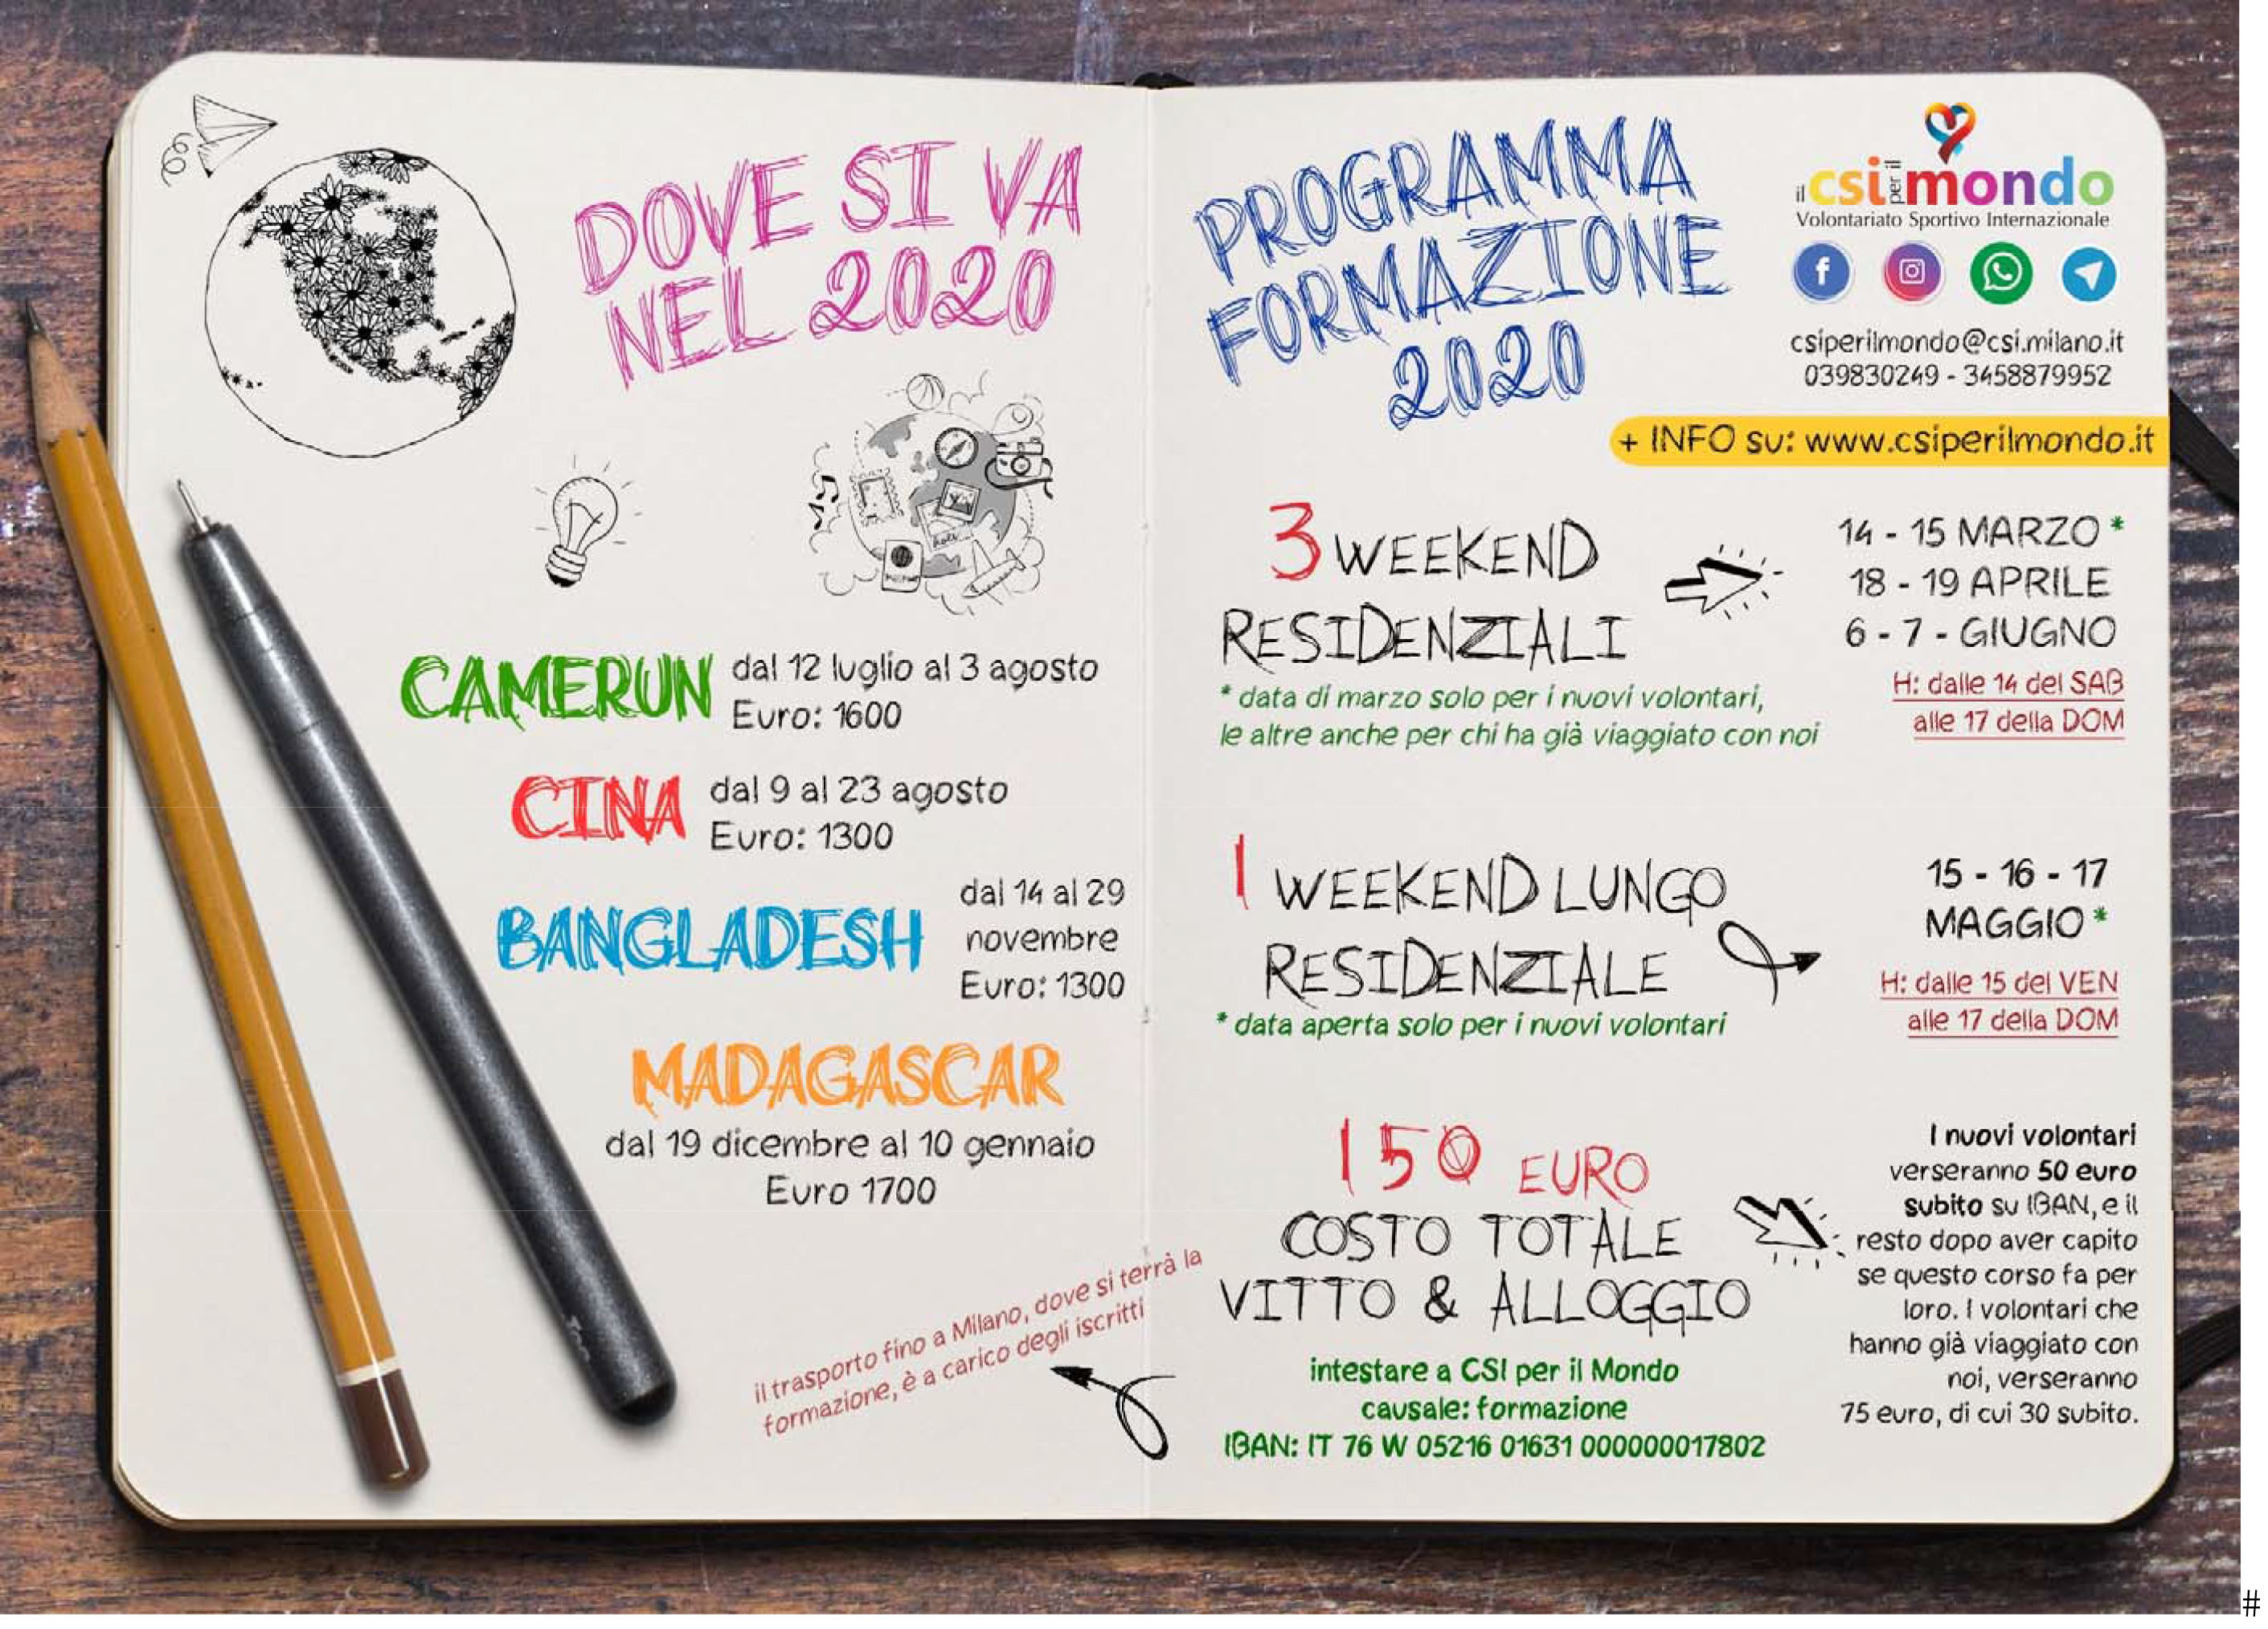 DOVE SI VA
NEL 2020
CAMERUN
dal 12 luglio al 3 agosto
Euro: 1600
CINA
dal 9 al 23 agosto
Euro: 1300
BANGLADESH
dal 14 al 29
novembre
Euro: 1300
MADAGASCAR
dal 19 dicembre al 10 gennaio
Euro 1700
il trasporto fino a Milano, dove si terrà la
formazione, è a carico degli iscritti
PROGRAMMA
FORMAZIONE
2020
il csi per il mondo
Volontariato Sportivo Internazionale
csiperilmondo@csi.milano.it
039830249 - 3458879952
+ INFO su: www.csiperilmondo.it
3 WEEKEND
RESIDENZIALI
* data di marzo solo per i nuovi volontari,
le altre anche per chi ha già viaggiato con noi
14 - 15 MARZO *
18 - 19 APRILE
6 - 7 - GIUGNO
H: dalle 14 del SAB
alle 17 della DOM
1 WEEKEND LUNGO
RESIDENZIALE
* data aperta solo per i nuovi volontari
15 - 16 - 17
MAGGIO *
H: dalle 15 del VEN
alle 17 della DOM
150 EURO
COSTO TOTALE
VITTO & ALLOGGIO
intestare a CSI per il Mondo
causale: formazione
IBAN: IT 76 W 05216 01631 000000017802
I nuovi volontari
verseranno 50 euro
subito su IBAN, e il
resto dopo aver capito
se questo corso fa per
loro. I volontari che
hanno già viaggiato con
noi, verseranno
75 euro, di cui 30 subito.
#